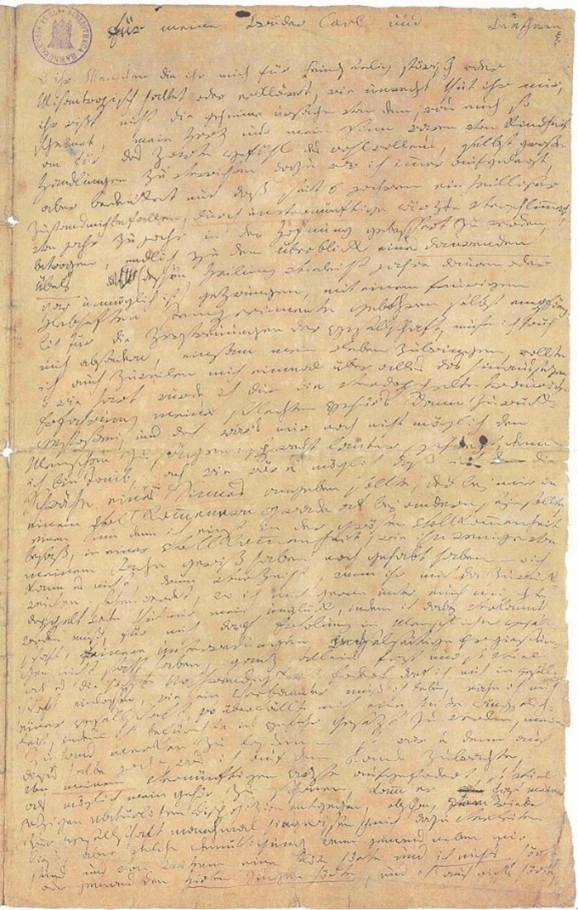 für meine Brüder Carl und Beethowen
O ihr Menschen die ihr mich für Feindseelig störisch oder
Misantropisch haltet oder erkläret, wie unrecht thut ihr mir,
ihr wißt nicht die geheime urßache von dem, was euch so
scheinet, mein Herz und mein Sinn waren von Kindheit
an für das Zarte Gefühl des wohlwollens, selbst große
Handlungen zu verrichten dazu war ich immer aufgelegt,
aber bedenket nur daß seit 6 jahren ein heilloser
Zustand mich befallen, durch unvernünftige ärzte verschlimmert,
von jahr zu jahr in der Hofnung gebessert zu werden,
betrogen, endlich zu dem überblick eines daurenden
Übels dessen Heilung vieleicht jahre dauren oder
gar unmöglich ist gezwungen, mit einem feurigen
Lebhaften Temperamente gebohren selbst empfäng-
lich für die Zerstreuungen der Gesellschaft, muste ich früh
mich absondern, einsam mein Leben zubringen, wollte
ich auch zuweilen mich einmal über alles das hinaussezen,
o wie hart wurde ich dur die verdoppelte traurige
Erfahrung meines schlechten Gehör's dann zurück-
gestoßen, und doch war's mir noch nicht möglich den
Menschen zu sagen: sprecht lauter, schreyt, denn
ich bin Taub, ach wie wär es möglich daß ich dann die
Schwäche eines Sinnes angeben sollte, der bey mir in
einem Vollkommenern Grade als bey andern seyn sollte
einen Sinn den ich einst in der grösten Vollkommenheit
besaß, in einer Vollkommenheit, wie ihn wenige von
meinem Fache gewiß haben noch gehabt haben – o ich
kann es nicht, drum verzeiht, wenn ihr mich da zurück-
weichen sehen werdet, wo ich mich gerne unter euch mischte,
doppelt Wehe thut mir mein unglück, indem ich dabey verkannt
werden muß, für mich darf Erholung in Menschlicher Gesell-
schaft, feinere unterredungen, wechselseitige Ergießun-
gen nicht statt haben, ganz allein fast nur so viel
als es die höchste Nothwendigkeit fodert, darf ich mich in gesell-
schaft einlassen, wie ein Verbannter muß ich leben, nahe ich mich
einer Gesellschaft, so überfällt mich eine heiße Ängstlich-
keit, indem ich befürchte in Gefahr gesezt zu werden, meinen
Zustand merken zu laßen – so war es denn auch
dieses halbe jahr, was ich auf dem Lande zubrachte,
von meinem vernünftigen Arzte aufgefodert, so viel
als möglich mein Gehör zu schonen, kam er fast meiner
jezigen natürlichen Disposizion entgegen, obschon, vom Triebe
zur Gesellschaft manchmal hingerissen, ich mich dazu verleiten
ließ, aber welche Demüthigung wenn jemand neben mir
stund und von weitem eine Flöte hörte und ich nichts hörte
oder jemand den Hirten Singen hörte, und ich auch nichts hörte,